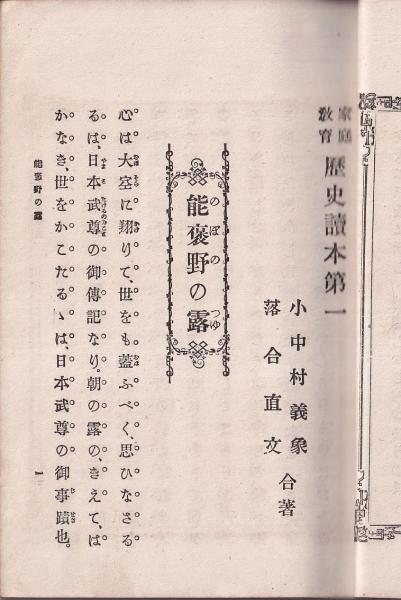 家庭教育 歴史讀本第一
小中村義象
落合直文 合著
能褒野の露
のぼの つゆ
心は大空に翔りて、世をも蓋ふべく、思ひなさる
るは、日本武尊の御傳記なり。朝の露の、きえて、は
かなき、世をかこたるゝは、日本武尊の御事蹟也。
能褒野の露
一